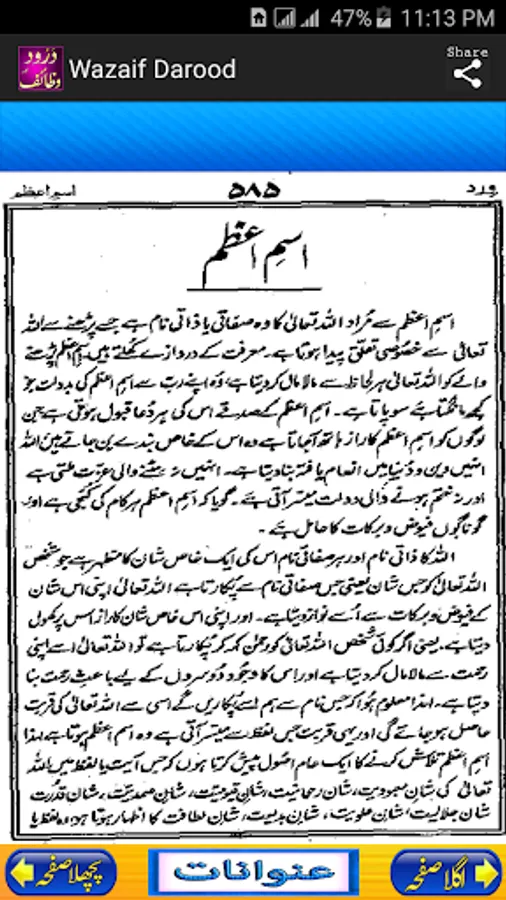 47% 11:13 PM
درود وظائف
Wazaif Darood
Share
ورد ۵۸۵ اسم اعظم
اسمِ اعظم
اسمِ اعظم سے مُراد اللہ تعالیٰ کا وہ صفاتی یا ذاتی نام ہے جسے پڑھنے سے اللہ
تعالیٰ سے خصوصی تعلق پیدا ہوتا ہے۔ معرفت کے دروازے کھلتے ہیں۔ اسمِ اعظم پڑھنے
والے کو اللہ تعالیٰ ہر لحاظ سے مالا مال کر دیتا ہے، وہ اپنے ربّ سے اسمِ اعظم کی بدولت جو
کچھ مانگتا ہے سو پاتا ہے۔ اسمِ اعظم کے صدقے اس کی ہر دُعا قبول ہوتی ہے جن
لوگوں کو اسمِ اعظم کا راز ہاتھ آجاتا ہے وہ اس کے خاص بندے بن جاتے ہیں اللہ
انہیں دین و دُنیا میں انعام یافتہ بنا دیتا ہے۔ انہیں نہ مٹنے والی عزت ملتی ہے
اور نہ ختم ہونے والی دولت میسّر آتی ہے۔ گویا کہ اسمِ اعظم ہر کام کی کنجی ہے اور
گوناگوں فیوض و برکات کا حامل ہے۔
اللہ کا ذاتی نام اور ہر صفاتی نام اس کی ایک خاص شان کا مظہر ہے جو شخص
اللہ تعالیٰ کو جس شان یعنی جس صفاتی نام سے پُکارتا ہے اللہ تعالیٰ اپنی اس شان
کے فیوض و برکات سے اُسے نوازدیتا ہے۔ اور اپنی اس خاص شان کا راز اس پر کھول
دیتا ہے۔ یعنی اگر کوئی شخص اللہ تعالیٰ کو رحمٰن کہہ کر پُکارتا ہے تو اللہ تعالیٰ اسے اپنی
رحمت سے مالا مال کر دیتا ہے اور اس کا وجود دُوسروں کے لیے باعثِ رحمت بنا
دیتا ہے۔ لہذا معلوم ہُوا کہ جس نام سے ہم اسے پُکاریں گے اسی سے اللہ تعالیٰ کی قربت
حاصل ہو جائے گی اور یہی قربت جس لفظ سے میسّر آتی ہے وہ اسمِ اعظم ہوتا ہے، لہذا
اسمِ اعظم تلاش کرنے کا ایک عام اصُول پیش کرتا ہوں کہ جس آیت یا لفظ میں اللہ
تعالیٰ کی شانِ معبودیت، شانِ رحمانیت، شانِ قیومیّت، شانِ صمدیّت، شانِ قدرت
شانِ جلالیت، شانِ علویت، شانِ بدلیت، شانِ لطافت کا اظہار ہوتا ہو وہ لفظ یا
پچھلا صفحہ عنوانات اگلا صفحہ